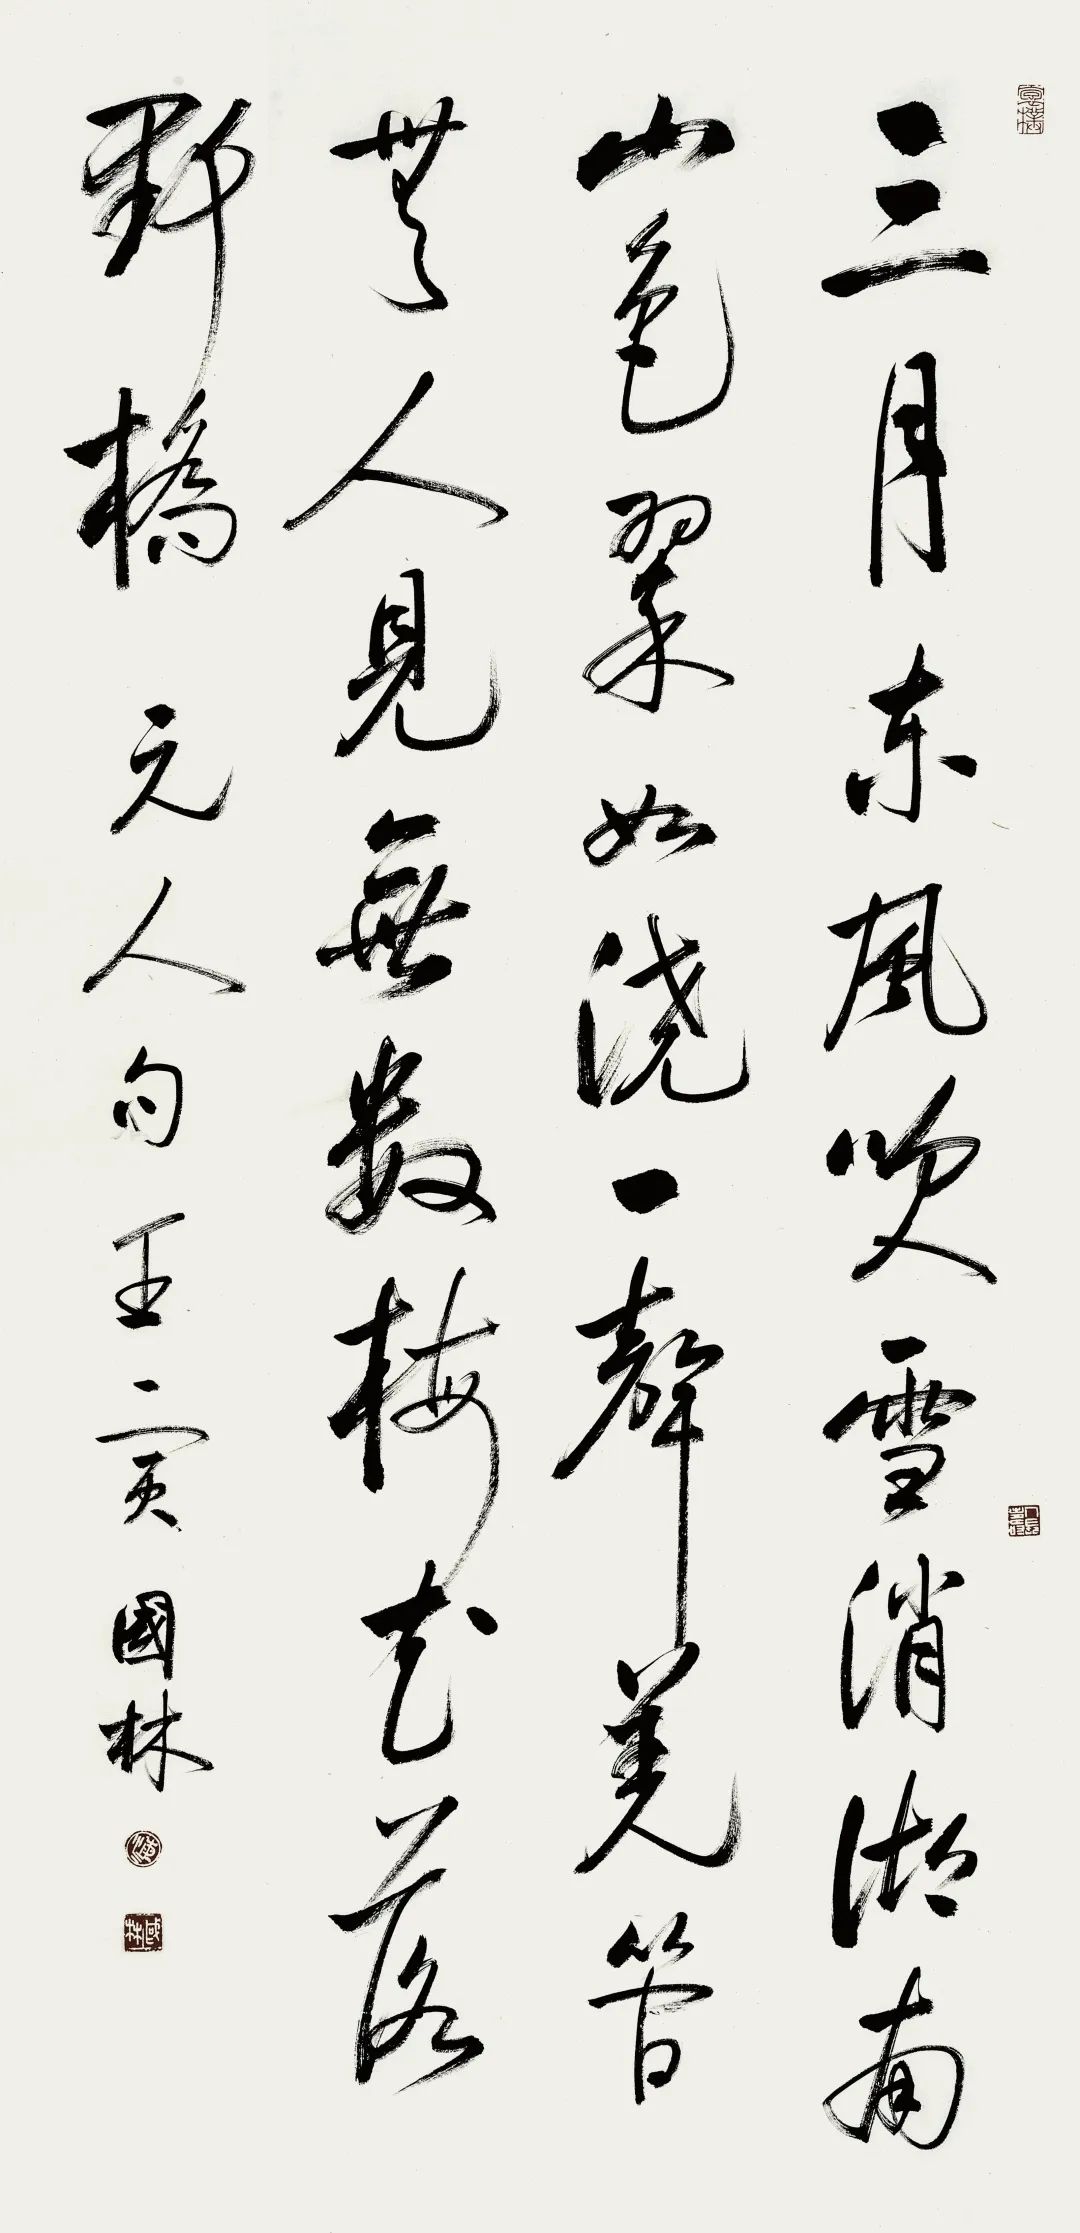 三月東風吹雪消湖南
山色翠如浇一聲羌管
無人見無数梅花落
野橋 元人句壬寅國林
國林